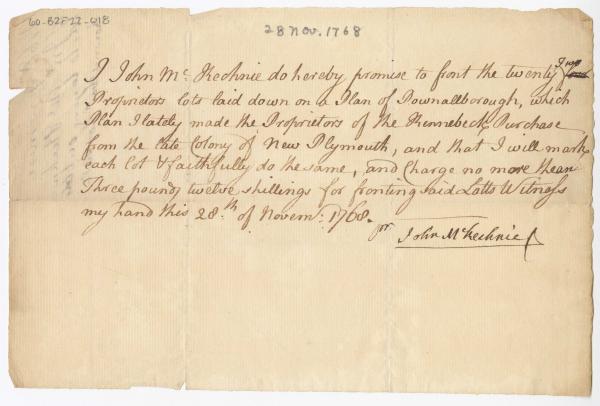 60-B2F22-018
28 Nov. 1768
I John Mc Kechnie do hereby promise to front the twenty Two
Proprietors lots laid down on a Plan of Pownallborough, which
Plan I lately made the Proprietors of the Kennebeck Purchase
from the late Colony of New Plymouth, and that I will mark
each Lot & faithfully do the same, and Charge no more than
Three pound, twelve shillings for fronting said Lotts Witness
my hand this 28.th of Novemr. 1768.
pr John McKechnie